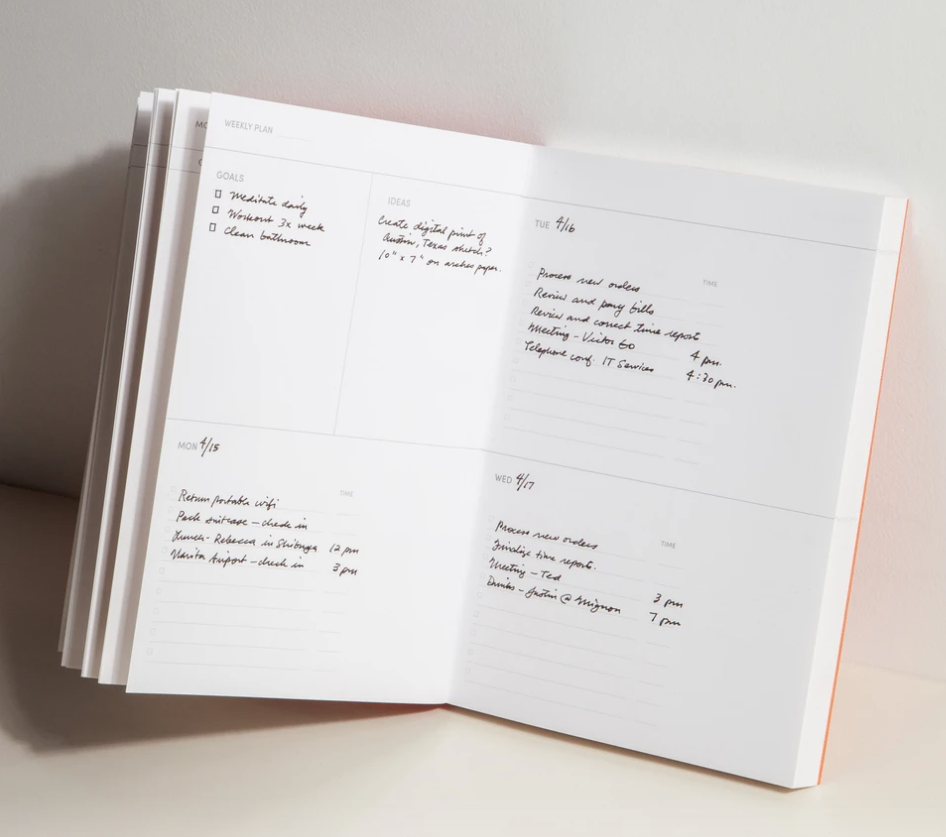 WEEKLY PLAN
GOALS
Meditate daily
Workout 3x week
Clean bathroom
IDEAS
Create digital print of
Austin, Texas sketch?
10" x 7" on arches paper.
MON 4/15
TIME
Return portable wifi
Pack suitcase – check in
Lunch - Rebecca in Shibuya 12 pm
Narita Airport - check in 3 pm
TUE 4/16
TIME
Process new orders
Review and pay bills
Review and correct time report
Meeting - Victor 4 pm.
Telephone conf. IT Services 4:30 pm.
WED 4/17
TIME
Process new orders
Finalize time reports.
Meeting – Ted 3 pm
Drinks - Justin @ Mignon 7 pm